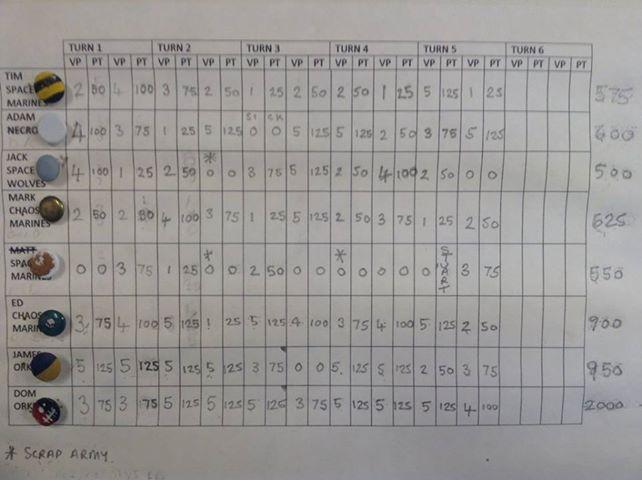 TURN 1 TURN 2 TURN 3 TURN 4 TURN 5 TURN 6
VP PT VP PT VP PT VP PT VP PT VP PT VP PT VP PT VP PT VP PT VP PT VP PT
TIM
SPACE 2 50 4 100 3 75 2 50 1 25 2 50 2 50 1 25 5 125 1 25 575
MARINES
ADAM
NECRO 4 100 3 75 1 25 5 125 0 0 5 125 5 125 2 50 3 75 5 125 600
JACK *
SPACE 4 100 1 25 2 50 0 0 3 75 5 125 2 50 4 100 2 50 0 0 500
WOLVES
MARK
CHAOS 2 50 2 50 4 100 3 75 1 25 5 125 2 50 3 75 1 25 2 50 625
MARINES
MATT * *
SPA 0 0 3 75 1 25 0 0 2 50 0 0 0 0 0 0 3 75 550
MARINES
ED
CHAOS 3 75 4 100 5 125 1 25 5 125 4 100 3 75 4 100 5 125 2 50 900
MARIN
JAMES
ORK 5 125 5 125 5 125 5 125 3 75 0 0 5 125 5 125 2 50 3 75 950
DOM
ORK 3 75 3 75 5 125 5 125 5 125 3 75 5 125 5 125 5 125 4 100 2000
* SCRAP ARMY